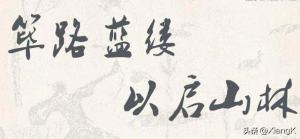 筚路蓝缕
以启山林
头条 @XiangK